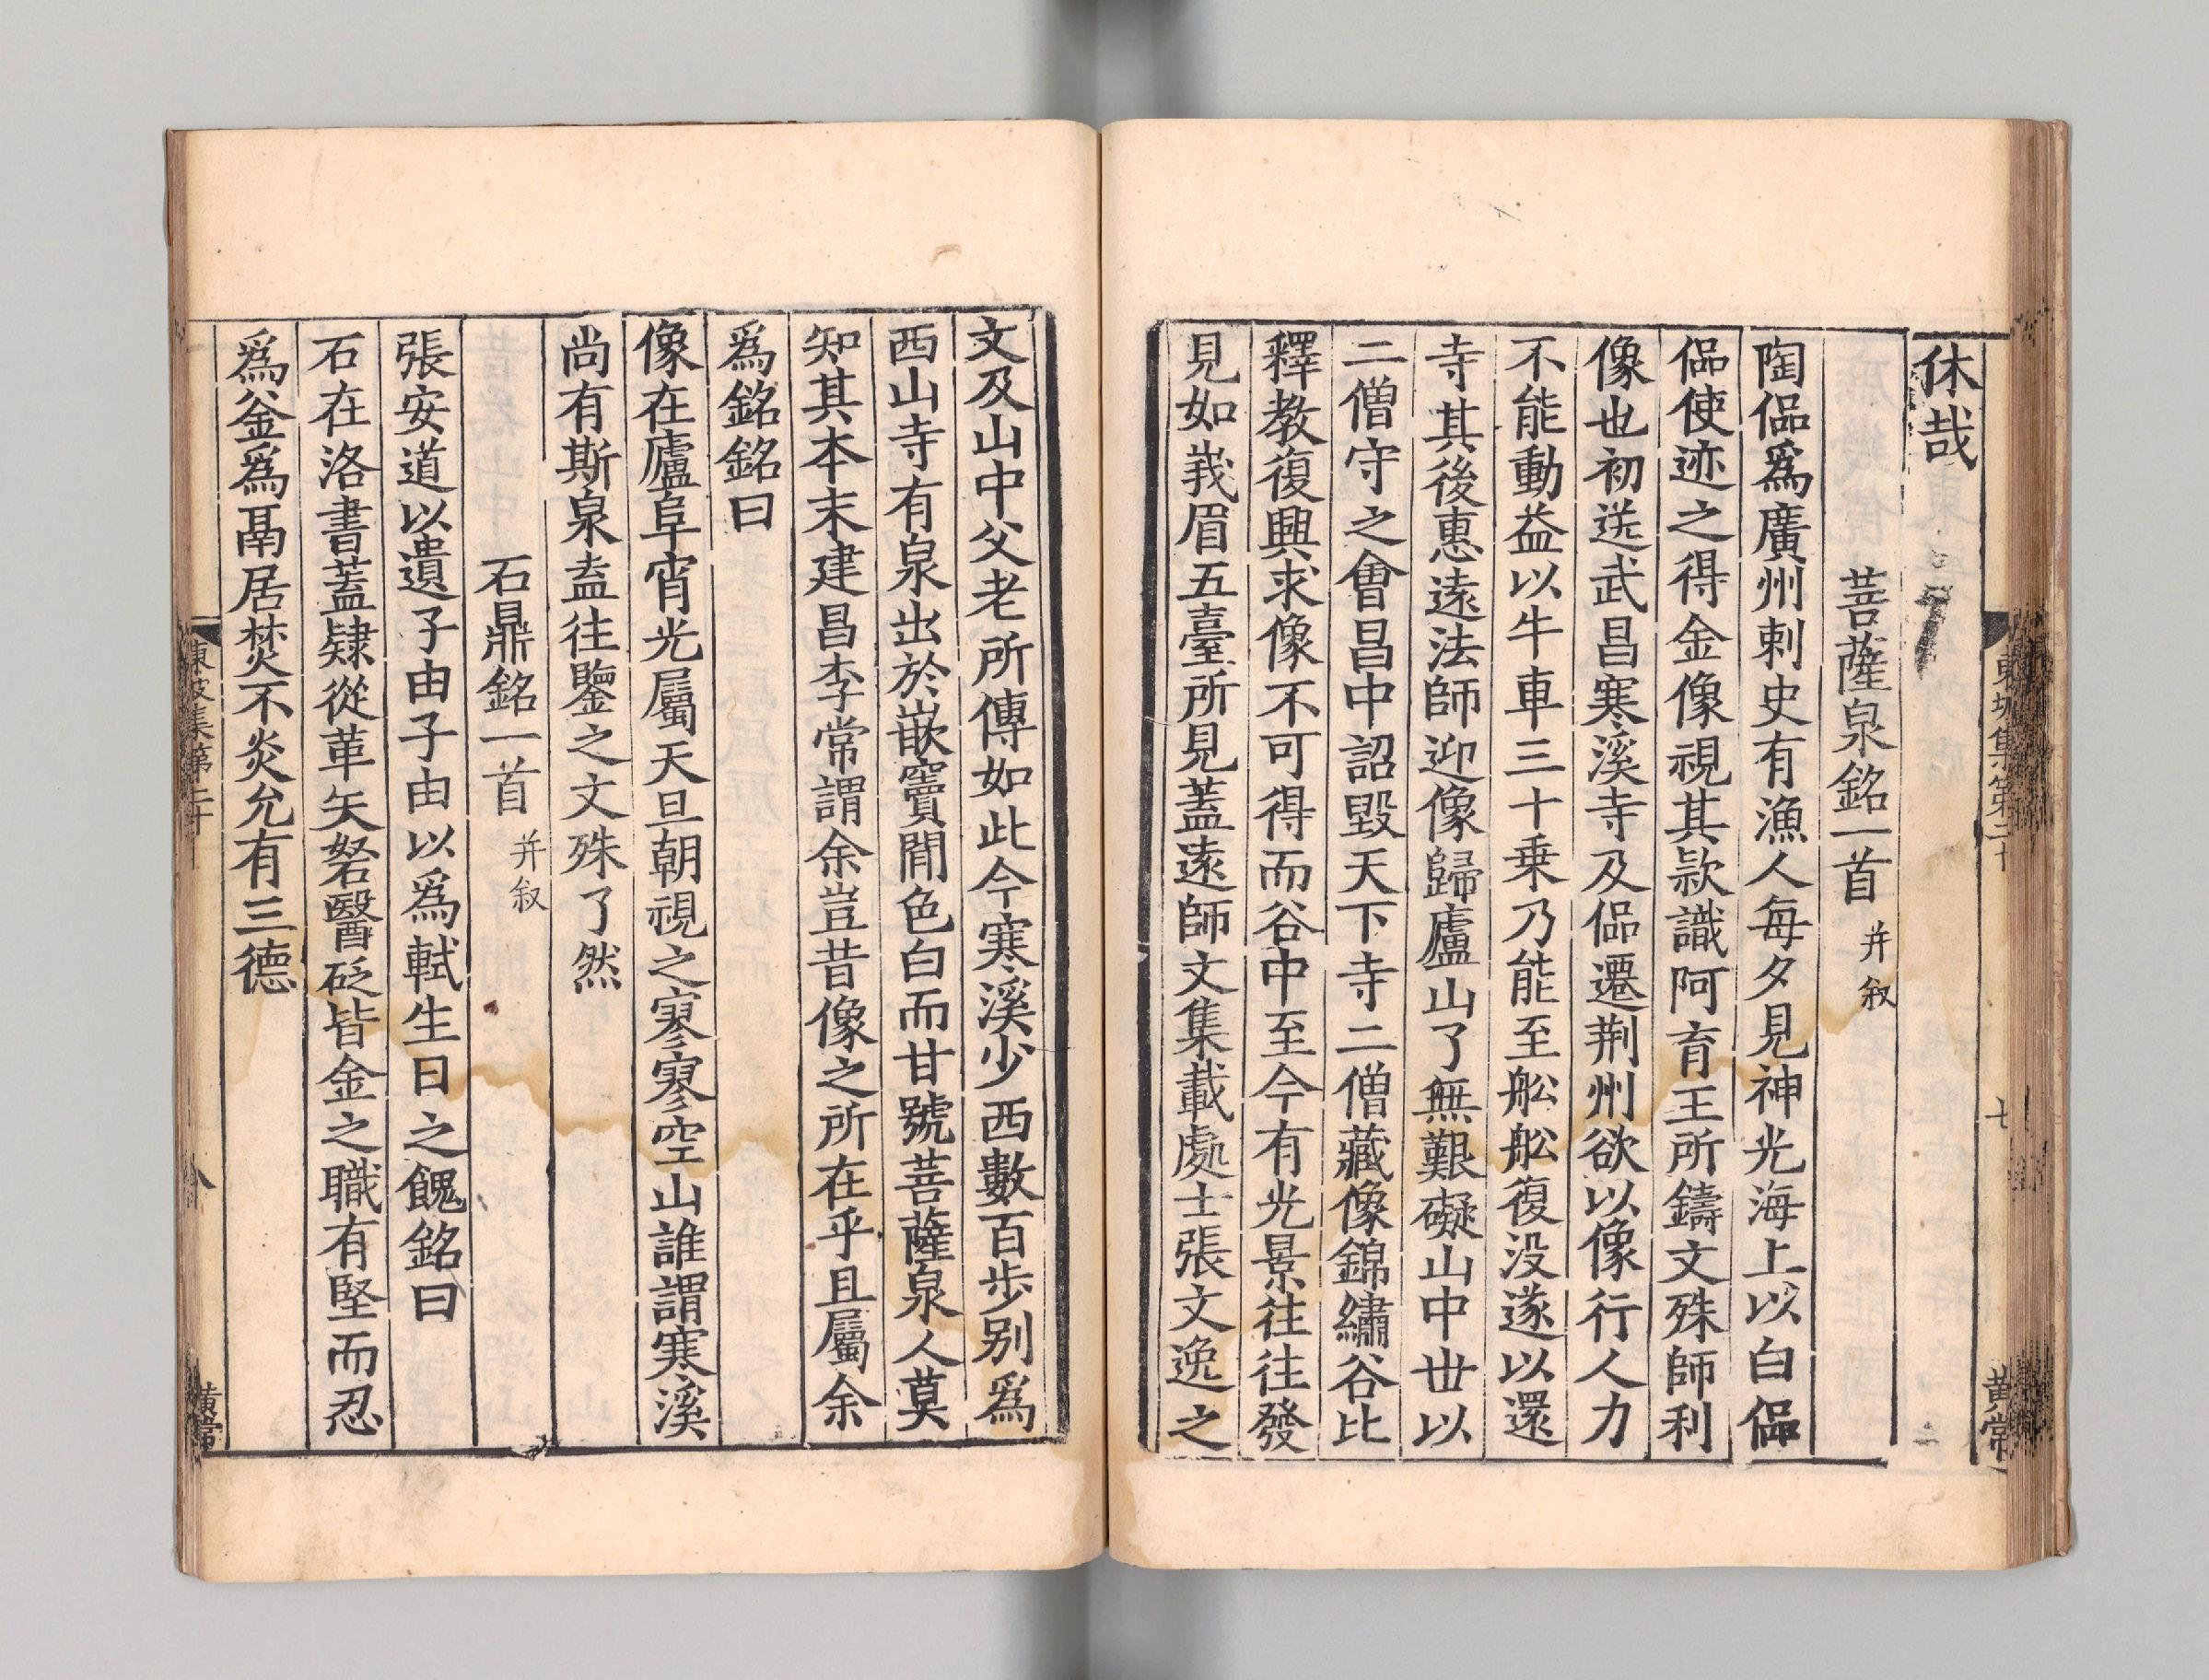 休哉
菩薩泉銘一首 并叙
陶侃爲廣州刺史有漁人每夕見神光海上以白侃
侃使迹之得金像視其款識阿育王所鑄文殊師利
像也初送武昌寒溪寺及侃遷荆州欲以像行人力
不能動益以牛車三十乗乃能至舩舩復没遂以還
寺其後惠遠法師迎像歸廬山了無艱礙山中世以
二僧守之會昌中詔毀天下寺二僧藏像錦繡谷比
釋教復興求像不可得而谷中至今有光景往往發
見如峩眉五臺所見蓋遠師文集載處士張文逸之
東坡集第二十
七
黄常
文及山中父老所傳如此今寒溪少西數百步别爲
西山寺有泉出於嵌竇閒色白而甘號菩薩泉人莫
知其本末建昌李常謂余豈昔像之所在乎且屬余
爲銘銘曰
像在廬阜宵光屬天旦朝視之寥寥空山誰謂寒溪
尚有斯泉盍往鑒之文殊了然
石鼎銘一首 并叙
張安道以遺子由子由以爲軾生日之餽銘曰
石在洛書蓋隸從革矢砮醫砭皆金之職有堅而忍
爲釜爲鬲居焚不炎允有三德
東坡集第二十
八
黄常